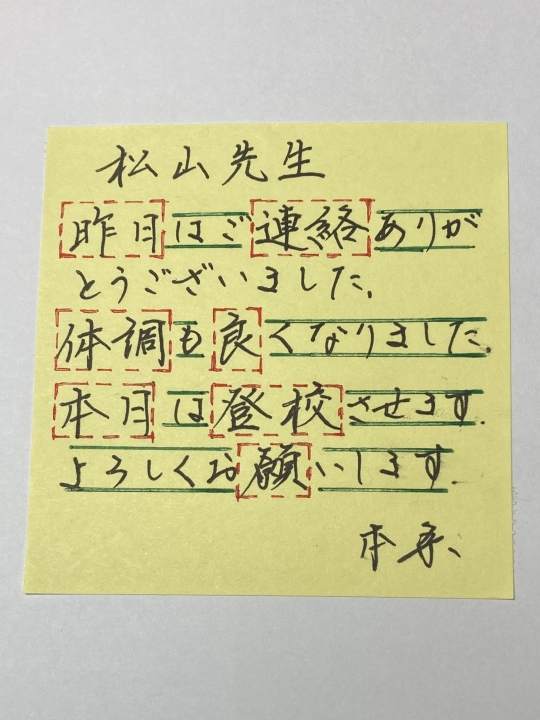 松山先生
昨日はご連絡ありが
とうございました。
体調も良くなりました。
本日は登校させます。
よろしくお願いします。